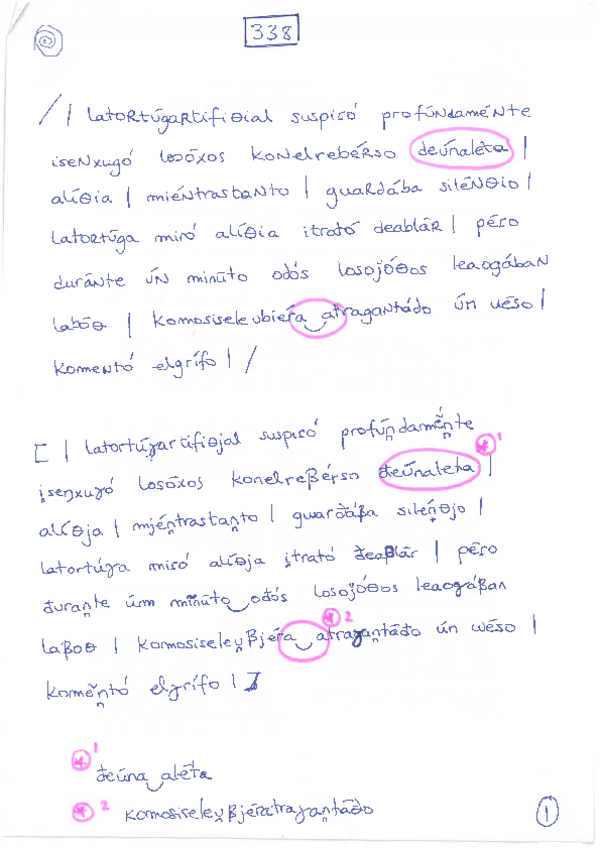 338
/ | latoRtúgaRtifiθial suspiró profúNdaméNte
iseNxugó losóxos konelrebéRso deúnaléta |
alíθia | miéNtrastaNto | guaRdába siléNθio |
latoRtúga miró alíθia itrató deabláR | péro
duráNte úN minúto odós losojóθos leaogábaN
labóθ | komosiseleubiéra atragaNtádo úN uéso |
komeNtó elgrífo | /
[ | latortúɣartifiθjal suspiró profún̪daménn̪te
i̯seŋxuɣó losóxos konelreβérso đeúnaleta | *1
alíθja | mjén̪trastan̪to | guarđáβa silén̟θjo |
latortúɣa miró alíθja i̯trató đeaβlár | péro
đurán̪te úm minúto‿ođós losojóθos leaogáβan
laβoθ | komosiseleu̯βjéra‿atraɣan̪táđo ún wéso | *2
komen̪tó elɣrífo | ]
*1 đeúna‿aléta
*2 komosiseleu̯βjératraɣan̪táđo
1